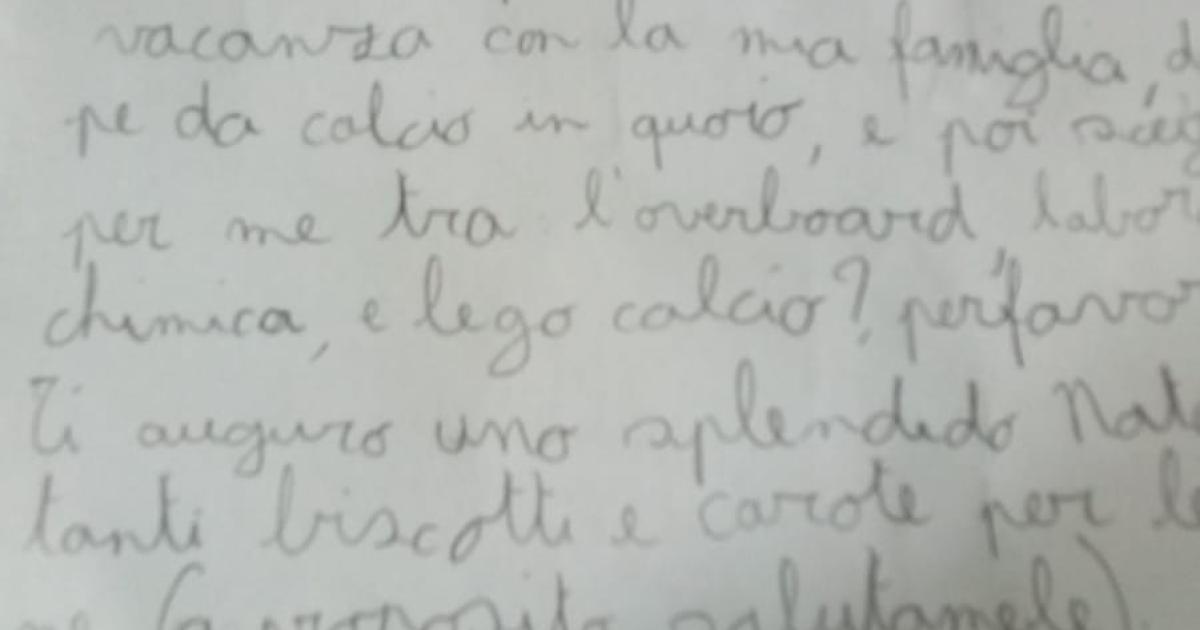 vacanza con la mia famiglia, d
pe da calcio in quoio, e poi sceg
per me tra l'overboard, labor
chimica, e lego calcio? per'favor
Ti auguro uno splendido Nata
tanti biscotti e carote per le
ne (a proposito salutamele)